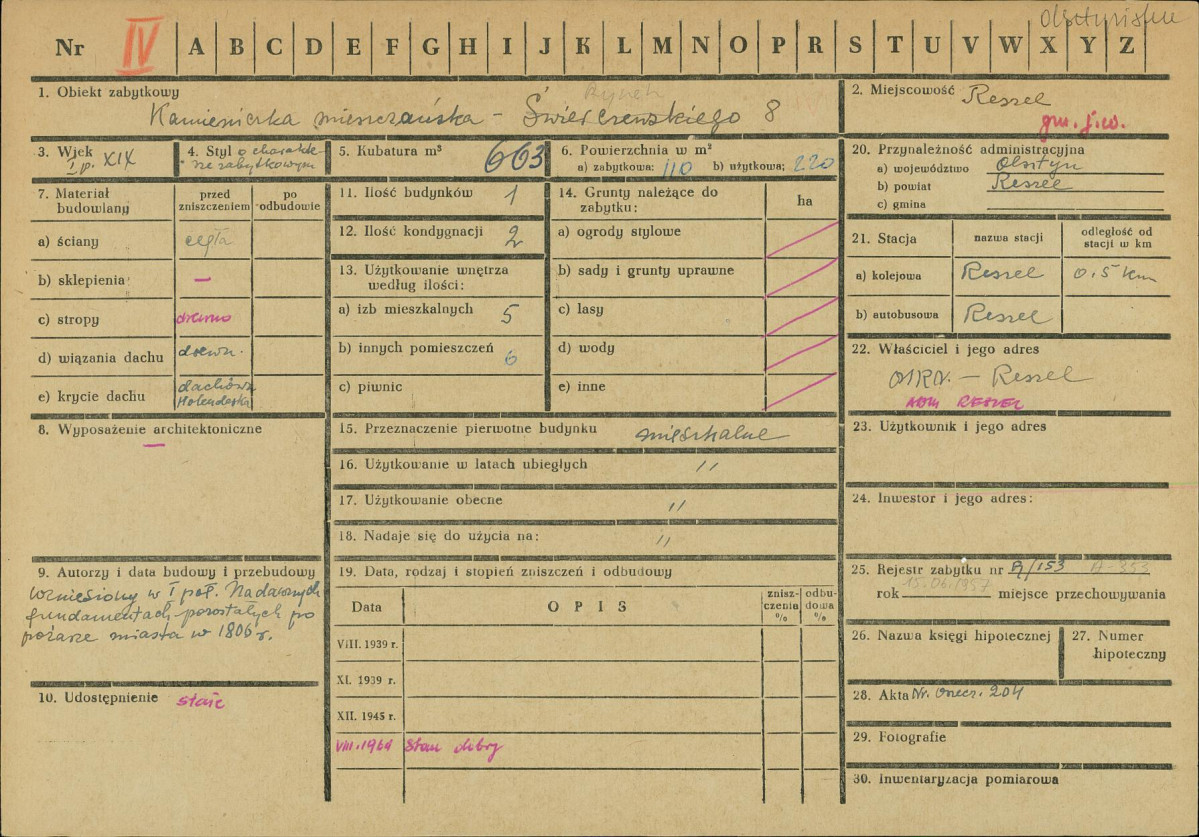 Olsztyńskie
Nr IV A B C D E F G H I J K L M N O P R S T U V W X Y Z
1. Obiekt zabytkowy
Rynek
Kamieniczka mieszczańska - Świerczewskiego 8
2. Miejscowość Reszel
gm. j.w.
3. Wiek XIX
I p.
4. Styl o charakte-
rze zabytkowym
5. Kubatura m³ 663
6. Powierzchnia w m²
a) zabytkowa: 110 b) użytkowa: 220
20. Przynależność administracyjna
a) województwo Olsztyn
b) powiat Reszel
c) gmina
7. Materiał budowlany
przed zniszczeniem
po odbudowie
a) ściany cegła
b) sklepienia —
c) stropy drewno
d) wiązania dachu drewn.
e) krycie dachu dachówka
Holenderska
11. Ilość budynków 1
12. Ilość kondygnacji 2
13. Użytkowanie wnętrza
według ilości:
a) izb mieszkalnych 5
b) innych pomieszczeń 6
c) piwnic
14. Grunty należące do
zabytku:
ha
a) ogrody stylowe
b) sady i grunty uprawne
c) lasy
d) wody
e) inne
21. Stacja
nazwa stacji
odległość od
stacji w km
a) kolejowa Reszel 0.5 km
b) autobusowa Reszel
22. Właściciel i jego adres
MRN. — Reszel
ADM RESZEL
8. Wyposażenie architektoniczne
—
15. Przeznaczenie pierwotne budynku mieszkalne
16. Użytkowanie w latach ubiegłych "
17. Użytkowanie obecne "
18. Nadaje się do użycia na: "
23. Użytkownik i jego adres
24. Inwestor i jego adres:
9. Autorzy i data budowy i przebudowy
wzniesiony w I poł. Na dawnych
fundamentach pozostałych po
pożarze miasta w 1806 r.
10. Udostępnienie stałe
19. Data, rodzaj i stopień zniszczeń i odbudowy
Data
OPIS
znisz-
czenia
%
odbu-
dowa
%
VIII. 1939 r.
XI. 1939 r.
XII. 1945 r.
VIII. 1964 Stan dobry
25. Rejestr zabytku nr A/153 A-353
15.06.1957
rok miejsce przechowywania
26. Nazwa księgi hipotecznej
27. Numer
hipoteczny
28. Akta Nr. 204
29. Fotografie
30. Inwentaryzacja pomiarowa